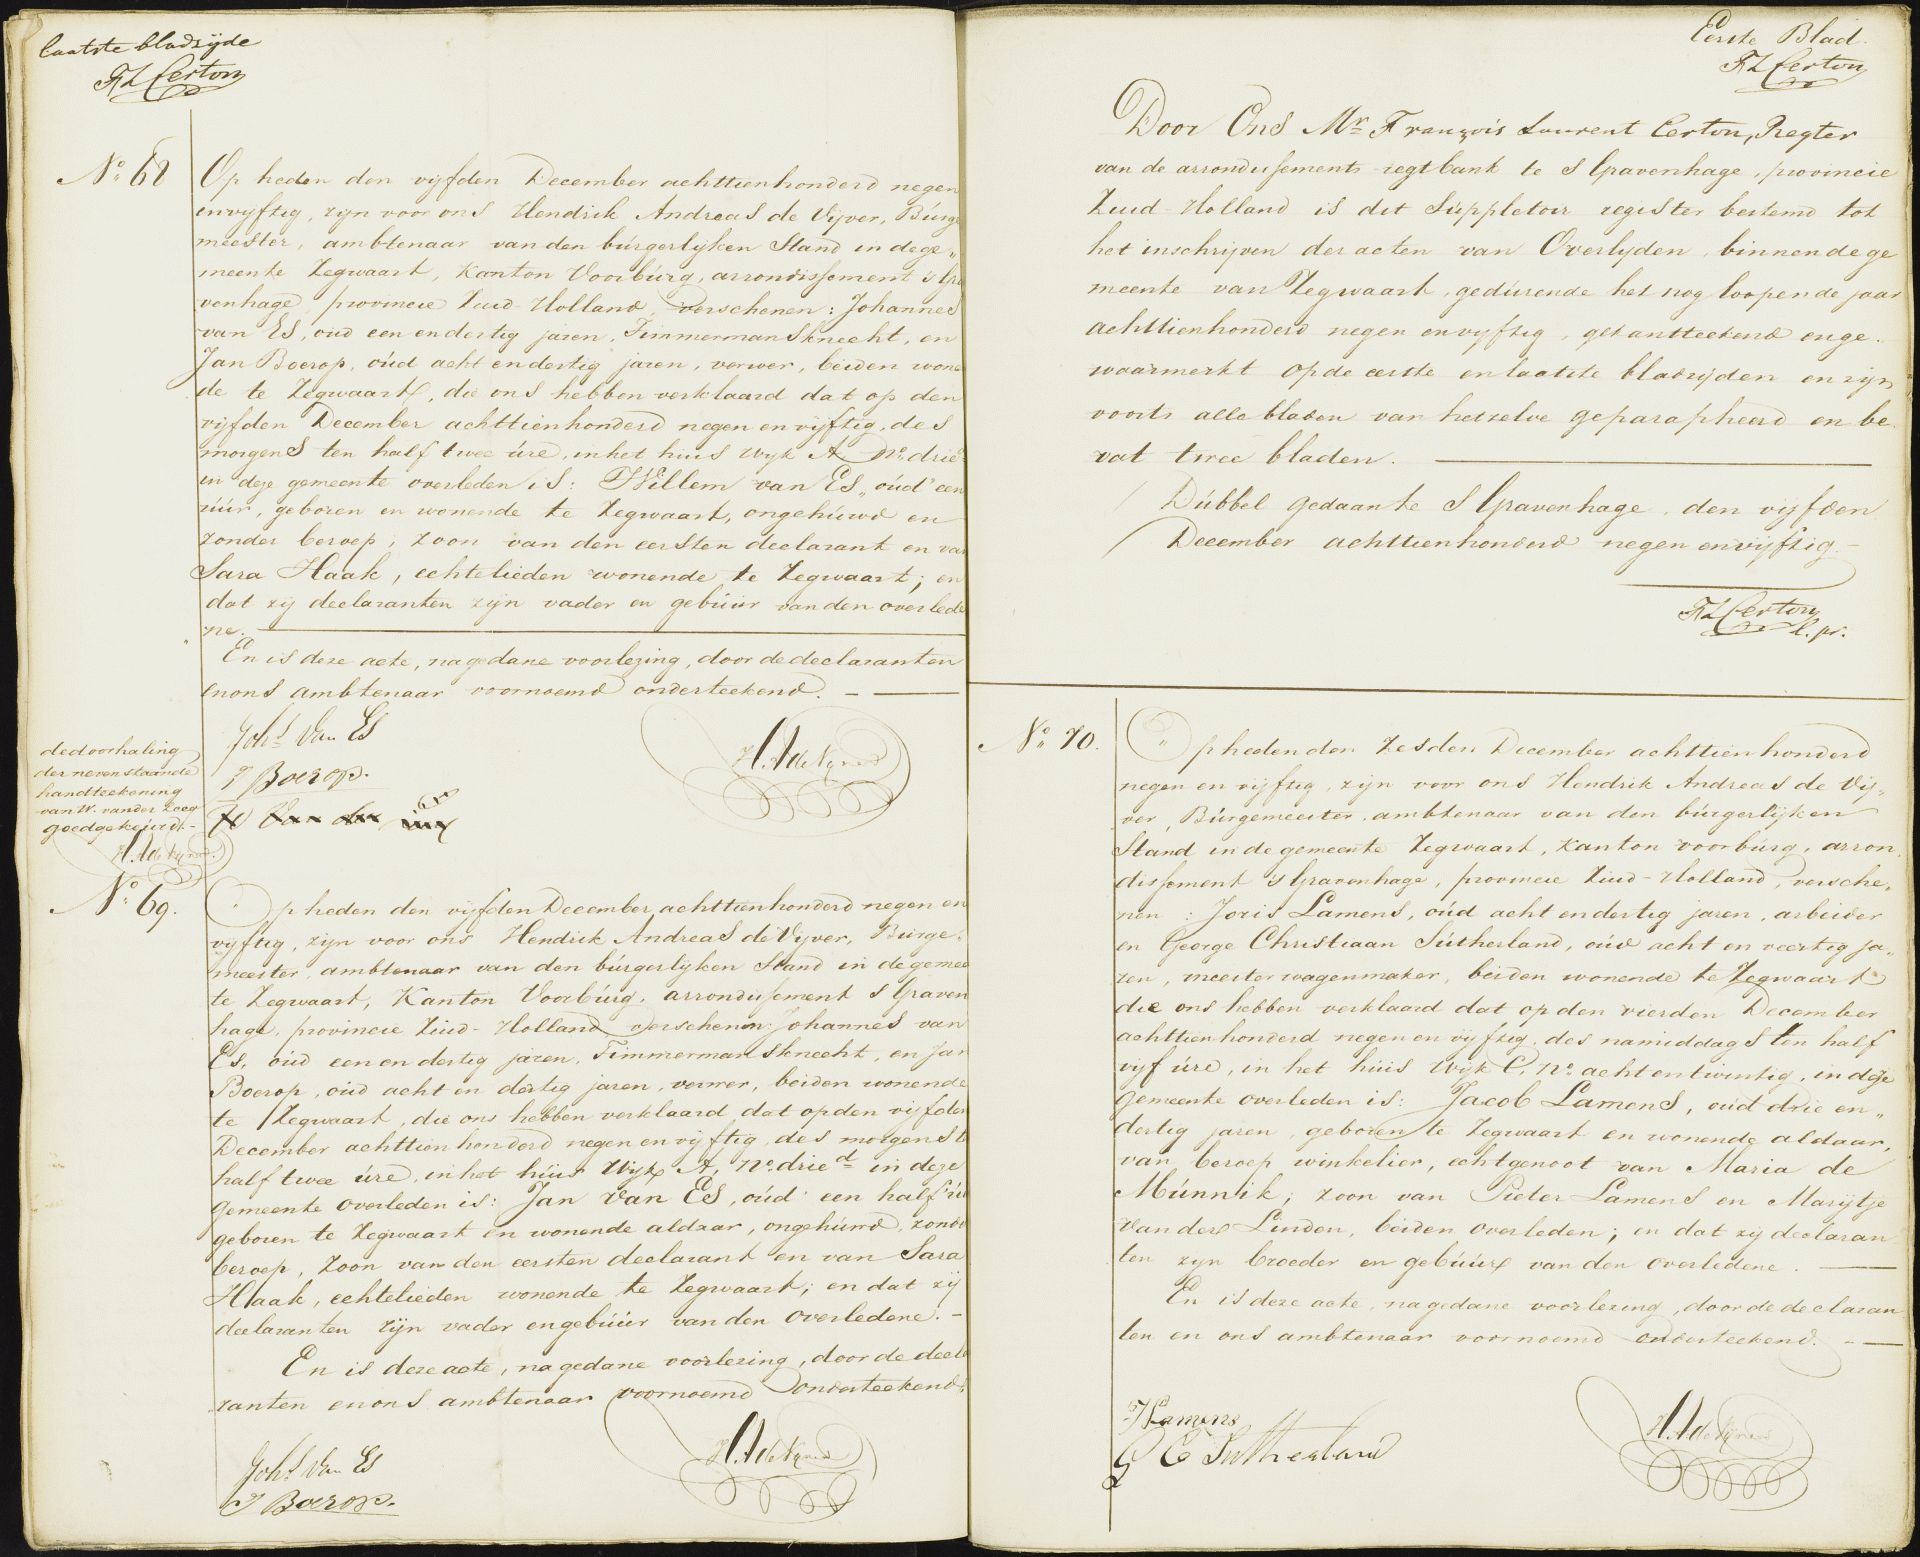 laatste bladzijde
FL Certon
No. 68
Op heden den vijfden December achttienhonderd negen
envijftig, zijn voor ons Hendrik Andreas de Vijver, Burge
meester, ambtenaar van den burgerlijken Stand in de ge„
meente Zegwaart, Kanton Voorburg, arrondissement s Gra
venhage, provincie Zuid-Holland, verschenen: Johannes
van Es, oud een en dertig jaren, Timmermansknecht, en
Jan Boerop, oud acht en dertig jaren, verwer, beiden wonen
de te Zegwaart, die ons hebben verklaard dat op den
vijfden December achttienhonderd negen en vijftig, des
morgens ten half twee ure, in het huis Wijk A, No. drie
in deze gemeente overleden is: Willem van Es, oud een
uur, geboren en wonende te Zegwaart, ongehuwd en
zonder beroep, zoon van den eersten declarant en van
Sara Haak, echtelieden wonende te Zegwaart; en
dat zij declaranten zijn vader en gebuur van den overlede
ne.
En is deze acte, na gedane voorlezing, door de declaranten
en ons ambtenaar voornoemd onderteekend.
Johs Van Es
J Boerop.
H.A de Vijver
W Van der
de doorhaling
der nevenstaande
handteekening
van W. van der Zeeg
goedgekeurd.-
H.A de Vijver.
No. 69.
Op heden den vijfden December achttienhonderd negen en
vijftig, zijn voor ons Hendrik Andreas de Vijver, Burge„
meester, ambtenaar van den burgerlijken Stand in de gemeen
te Zegwaart, Kanton Voorburg, arrondissement s Graven
hage, provincie Zuid-Holland verschenen: Johannes van
Es, oud een en dertig jaren, Timmermansknecht, en Jan
Boerop, oud acht en dertig jaren, verwer, beiden wonende
te Zegwaart, die ons hebben verklaard dat op den vijfden
December achttienhonderd negen en vijftig, des morgens te
half twee ure, in het huis Wijk A, No. drie d in deze
gemeente overleden is: Jan van Es, oud een half uu
geboren te Zegwaart en wonende aldaar, ongehuwd, zonde
beroep, zoon van den eersten declarant en van Sara
Haak, echtelieden wonende te Zegwaart; en dat zij
declaranten zijn vader en gebuur van den overledene.-
En is deze acte, na gedane voorlezing, door de decla
ranten en ons ambtenaar voornoemd onderteekend.
Johs Van Es
J Boerop.
H.A de Vijver
Eerste Blad.
FL Certon
Door Ons Mr. François Laurent Certon, Regter
van de arrondissements-regtbank te s Gravenhage, provincie
Zuid-Holland is dit Suppletoir register bestemd tot
het inschrijven der acten van Overlijden, binnen de ge
meente van Zegwaart, gedurende het nog loopende jaar
achttienhonderd negen en vijftig, gekantteekend en ge.
waarmerkt op de eerste en laatste bladzijden en zijn
voorts alle bladen van hetzelve geparapheerd en be.
vat twee bladen.
Dubbel gedaan te s Gravenhage, den vijfden
December achttienhonderd negen en vijftig.-
FL Certon
l. pr.
No. 70.
Op heden den Zesden December achttienhonderd
negen en vijftig, zijn voor ons Hendrik Andreas de Vij„
ver, Burgemeester, ambtenaar van den burgerlijken
Stand in de gemeente Zegwaart, Kanton Voorburg, arron
dissement 's Gravenhage, provincie Zuid-Holland, versche„
nen: Joris Lamens, oud acht en dertig jaren, arbeider
en George Christiaan Sutherland, oud acht en veertig ja„
ren, meester wagenmaker, beiden wonende te Zegwaart
die ons hebben verklaard dat op den vierden December
achttienhonderd negen en vijftig, des namiddags ten half
vijf ure, in het huis Wijk C, No. acht en twintig, in deze
gemeente overleden is: Jacob Lamens, oud drie en„
dertig jaren, geboren te Zegwaart en wonende aldaar,
van beroep winkelier, echtgenoot van Maria de
Munnik; zoon van Pieter Lamens en Marijtje
van der Linden, beiden overleden; en dat zij declaran
ten zijn broeder en gebuur van den overledene.
En is deze acte, na gedane voorlezing, door de declaran
ten en ons ambtenaar voornoemd onderteekend.
J Lamens
G C Sutherland
H.A de Vijver